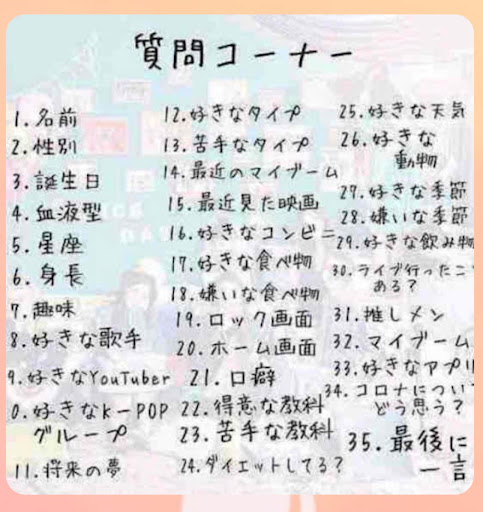 質問コーナー
1.名前
2.性別
3.誕生日
4.血液型
5.星座
6.身長
7.趣味
8.好きな歌手
9.好きなYouTuber
0.好きなK-POP
グループ
11.将来の夢
12.好きなタイプ
13.苦手なタイプ
14.最近のマイブーム
15.最近見た映画
16.好きなコンビニ
17.好きな食べ物
18.嫌いな食べ物
19.ロック画面
20.ホーム画面
21.口癖
22.得意な教科
23.苦手な教科
24.ダイエットしてる?
25.好きな天気
26.好きな
動物
27.好きな季節
28.嫌いな季節
29.好きな飲み物
30.ライブ行ったこ
ある?
31.推しメン
32.マイブーム
33.好きなアプリ
34.コロナについ
どう思う?
35.最後に
一言